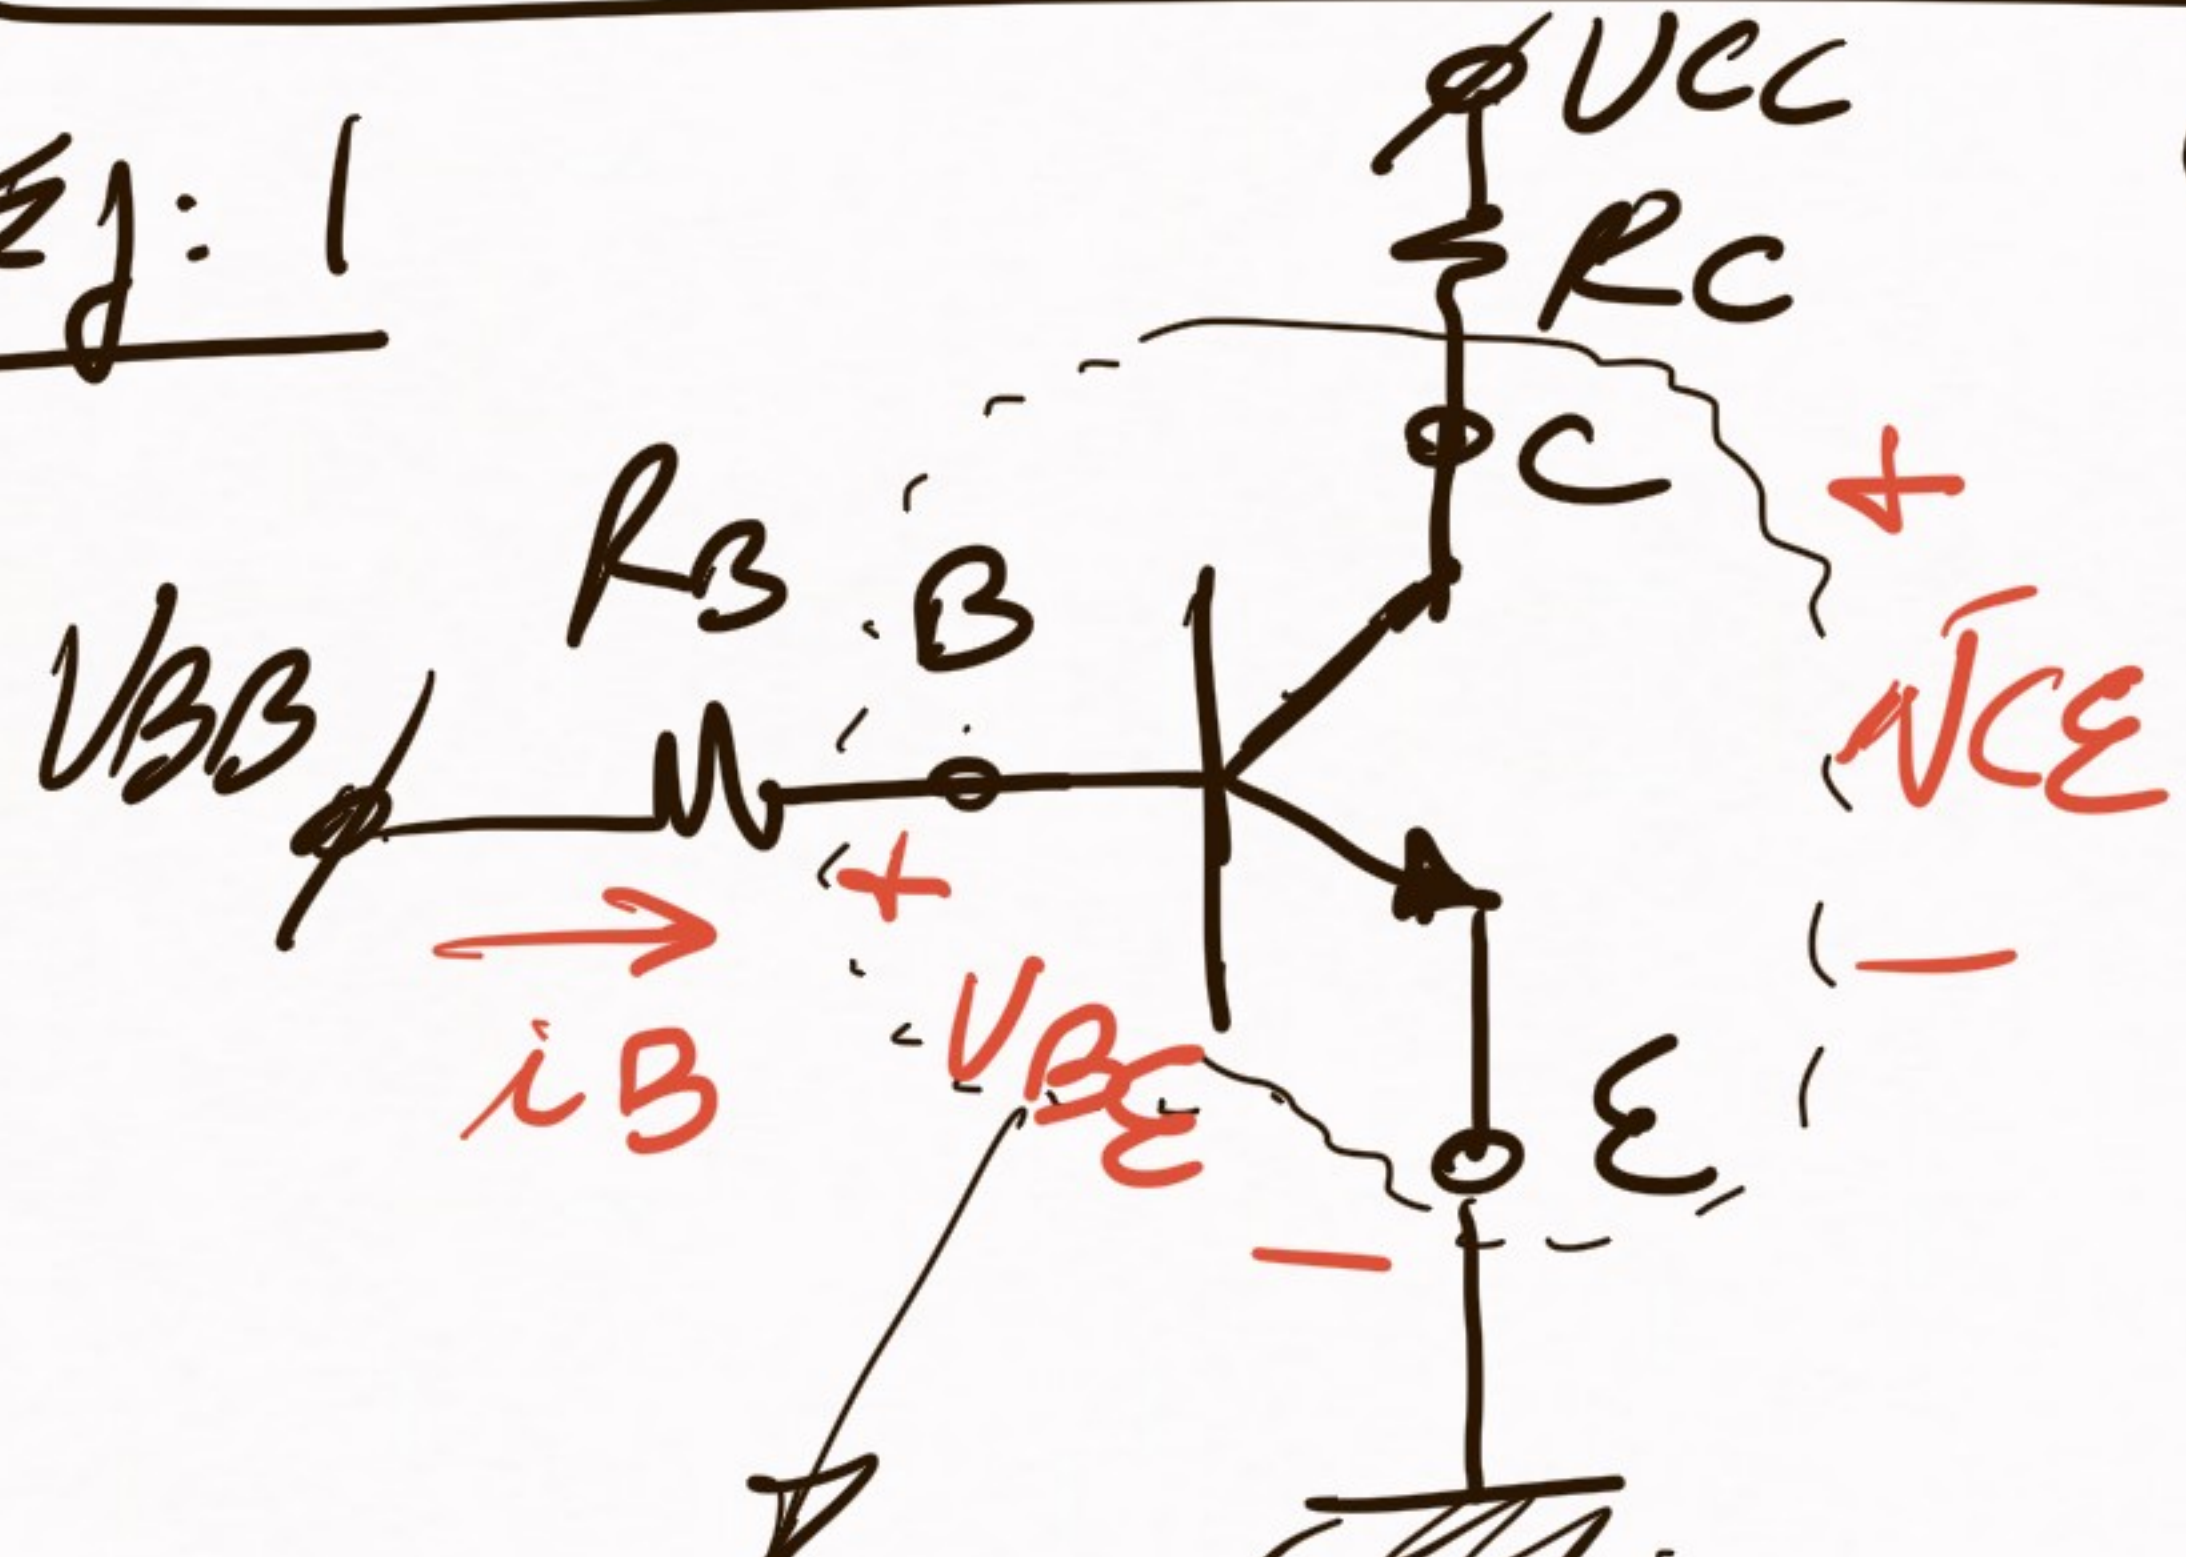 Ej: 1
VCC
RC
C
+
RB
B
VBB
VCE
+
-
iB
VBE
E
-